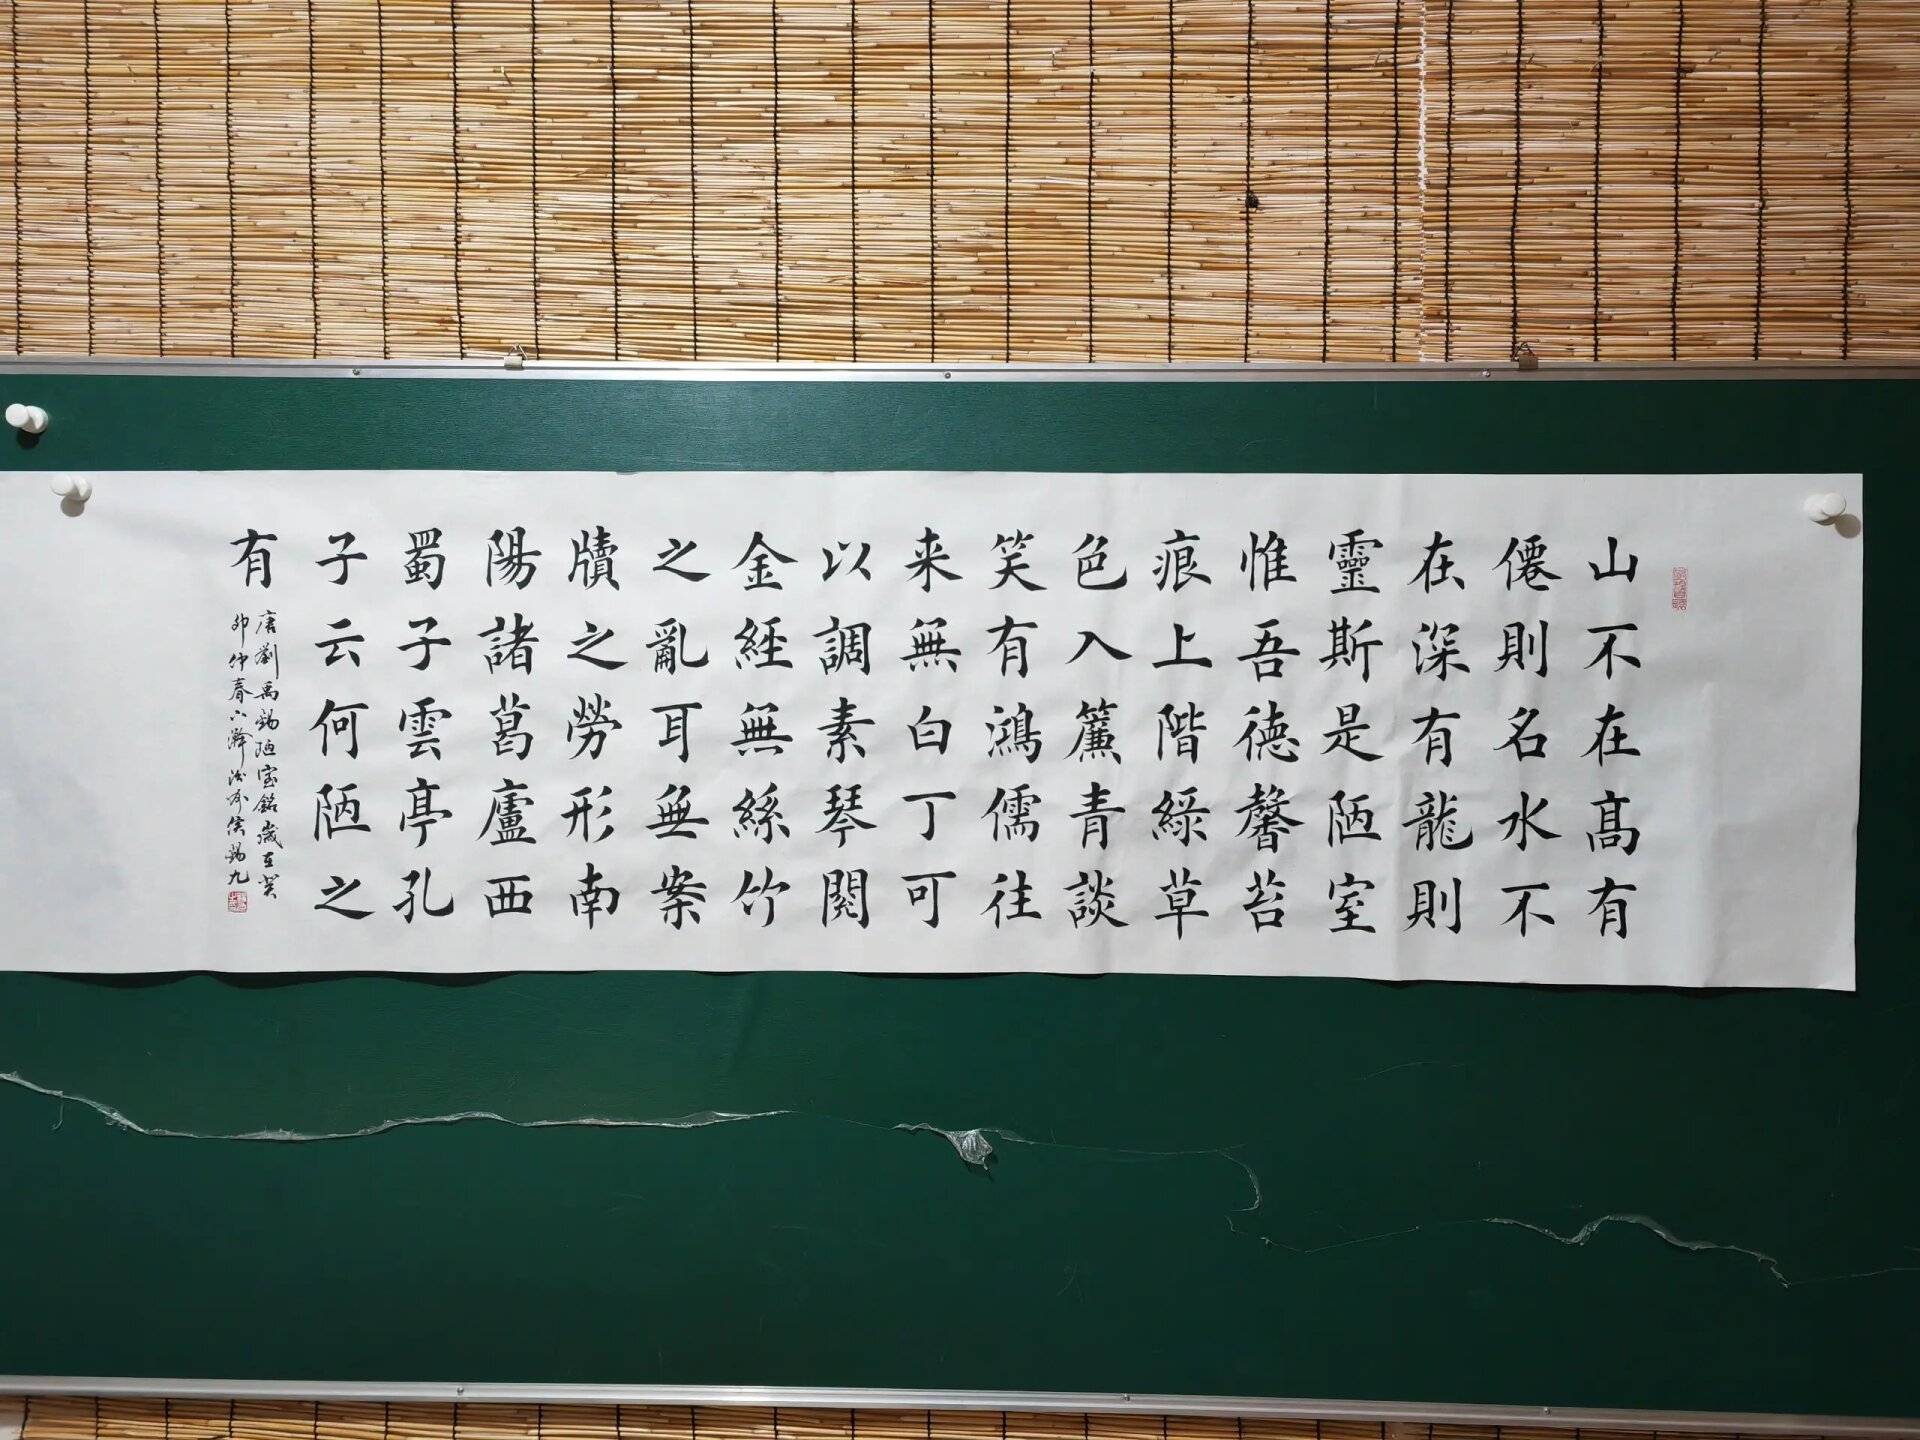 山不在髙有
僊則名水不
在深有龍則
靈斯是陋室
惟吾德馨苔
痕上階綠草
色入簾青談
笑有鴻儒往
来無白丁可
以調素琴閱
金經無絲竹
之亂耳無案
牘之勞形南
陽諸葛廬西
蜀子雲亭孔
子云何陋之
有
唐劉禹錫陋室銘歲在癸
卯仲春侯錫九